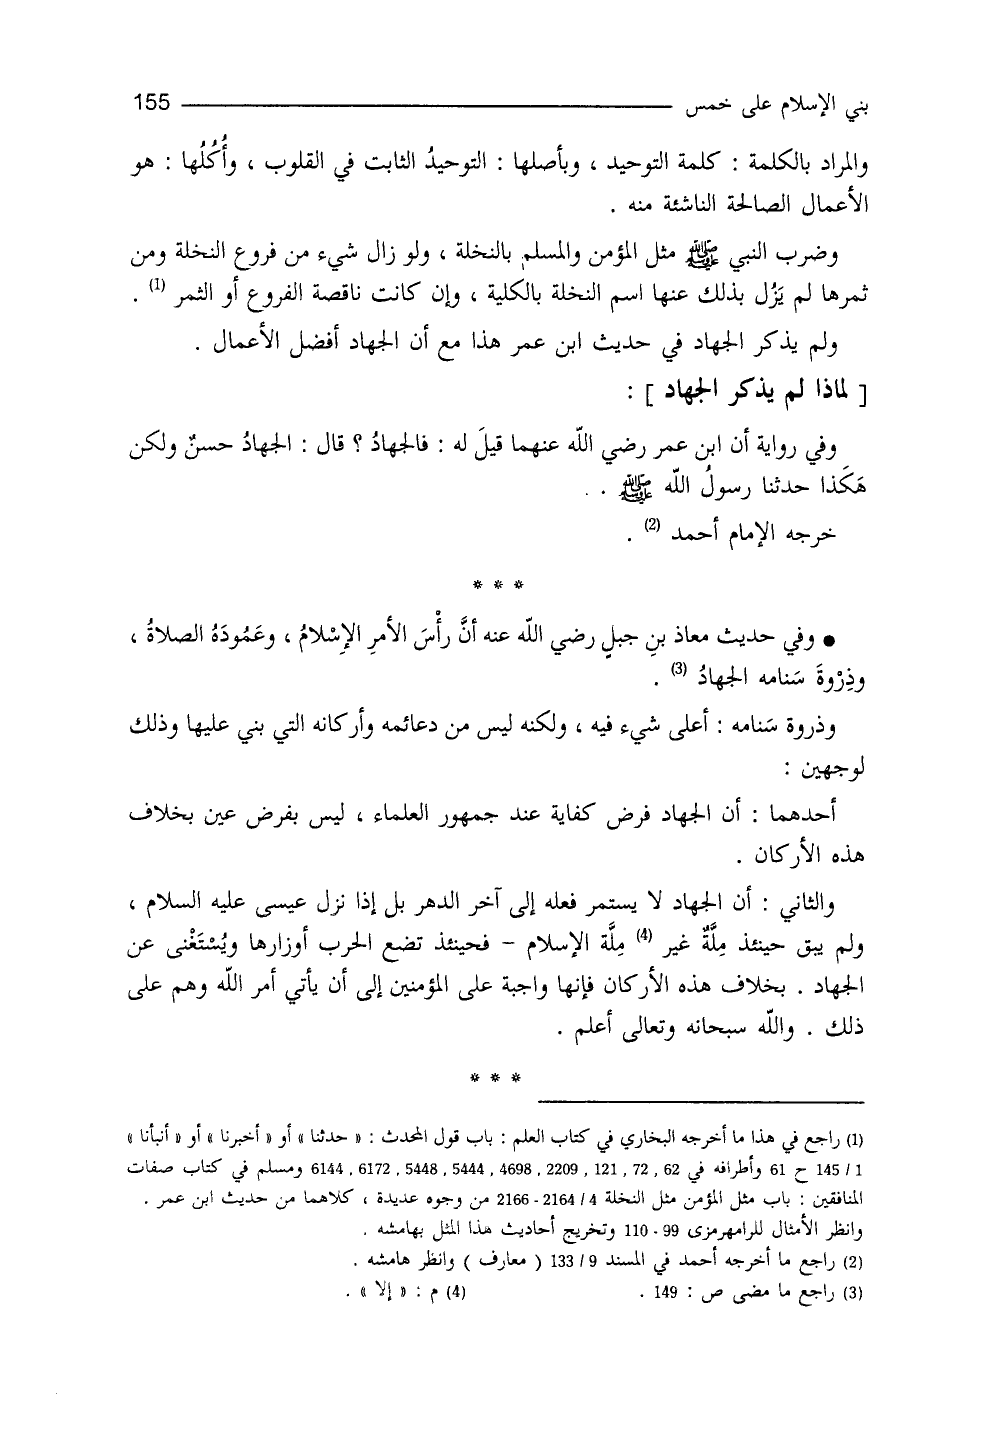 بني الإسلام على خمس 155
والمراد بالكلمة : كلمة التوحيد ، وبأصلها : التوحيدُ الثابت في القلوب ، وأُكُلُها : هو
الأعمال الصالحة الناشئة منه .
وضرب النبي ﷺ مثل المؤمن والمسلم بالنخلة ، ولو زال شيء من فروع النخلة ومن
ثمرها لم يَزُل بذلك عنها اسم النخلة بالكلية ، وإن كانت ناقصة الفروع أو الثمر (1) .
ولم يذكر الجهاد في حديث ابن عمر هذا مع أن الجهاد أفضل الأعمال .
[ لماذا لم يذكر الجهاد ] :
وفي رواية أن ابن عمر رضي الله عنهما قيلَ له : فالجهادُ ؟ قال : الجهادُ حسنٌ ولكن
هَكَذا حدثنا رسولُ الله ﷺ .
خرجه الإمام أحمد (2) .
* * *
● وفي حديث معاذ بنِ جبلٍ رضي الله عنه أنَّ رأْسَ الأمرِ الإِسْلامُ ، وعَمُودَهُ الصلاةُ ،
وذِرْوةَ سَنامه الجهادُ (3) .
وذروة سَنامه : أعلى شيء فيه ، ولكنه ليس من دعائمه وأركانه التي بني عليها وذلك
لوجهين :
أحدهما : أن الجهاد فرض كفاية عند جمهور العلماء ، ليس بفرض عين بخلاف
هذه الأركان .
والثاني : أن الجهاد لا يستمر فعله إلى آخر الدهر بل إذا نزل عيسى عليه السلام ،
ولم يبق حينئذ مِلَّةٌ غير (4) مِلَّة الإسلام – فحينئذ تضع الحرب أوزارها ويُسْتَغْنى عن
الجهاد . بخلاف هذه الأركان فإنها واجبة على المؤمنين إلى أن يأتي أمر الله وهم على
ذلك . والله سبحانه وتعالى أعلم .
* * *
(1) راجع في هذا ما أخرجه البخاري في كتاب العلم : باب قول المحدث : « حدثنا » أو « أخبرنا » أو « أنبأنا »
1 / 145 ح 61 وأطرافه في 62 , 72 , 121 , 2209 , 4698 , 5444 , 5448 , 6172 , 6144 ومسلم في كتاب صفات
المنافقين : باب مثل المؤمن مثل النخلة 4 / 2164 - 2166 من وجوه عديدة ، كلاهما من حديث ابن عمر .
وانظر الأمثال للرامهرمزى 99 - 110 وتخريج أحاديث هذا المثل بهامشه .
(2) راجع ما أخرجه أحمد في المسند 9 / 133 ( معارف ) وانظر هامشه .
(3) راجع ما مضى ص : 149 . (4) م : « إلا » .